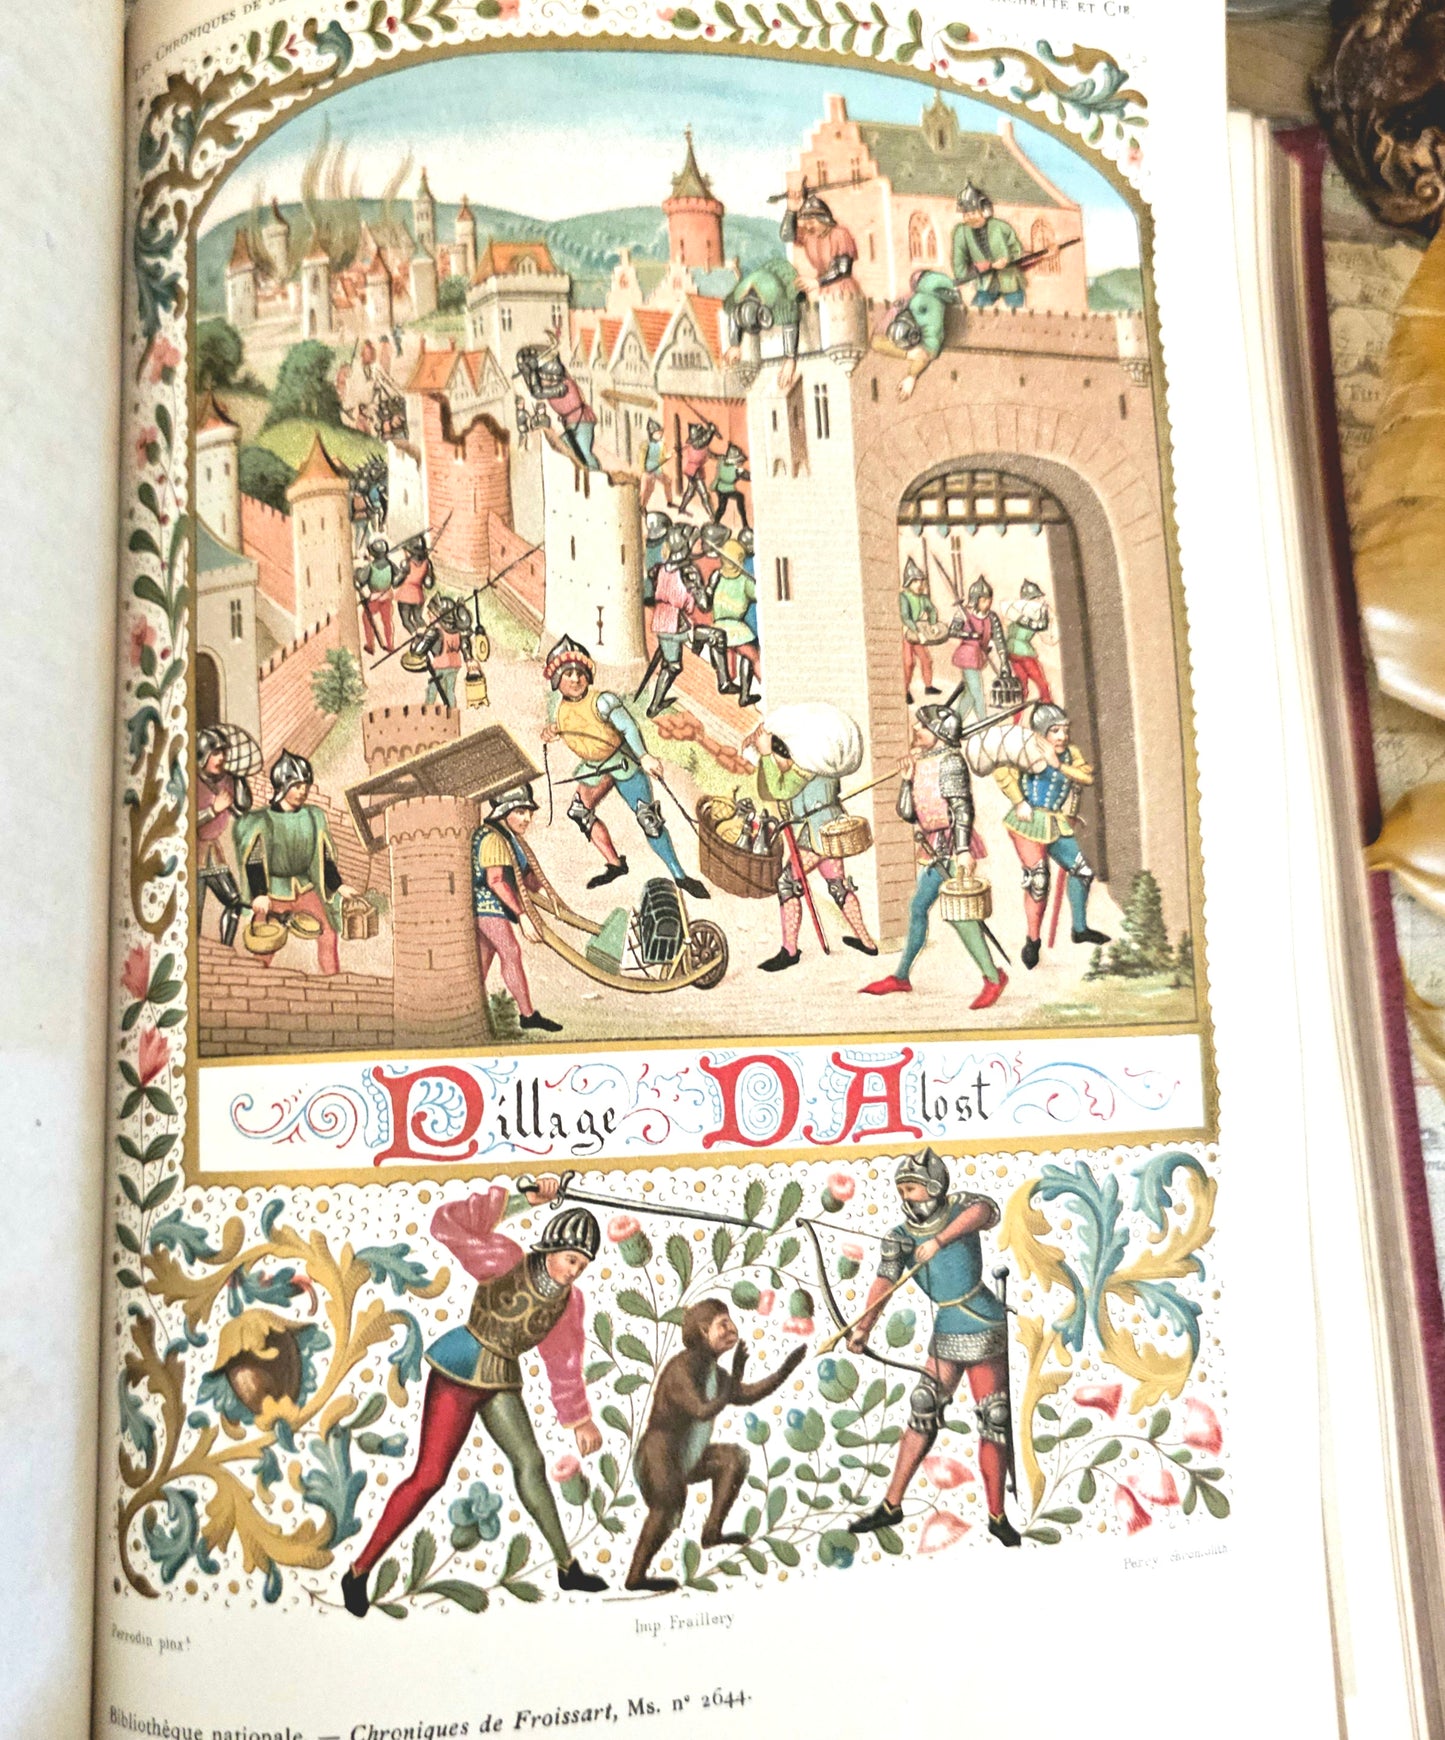 LES CHRONIQUES DE
HACHETTE ET CIE.
Pillage D'Alost
Perrodin pinx.t
Imp Fraillery
Percy chromolith.
Bibliothèque nationale. — Chroniques de Froissart, Ms. n° 2644.